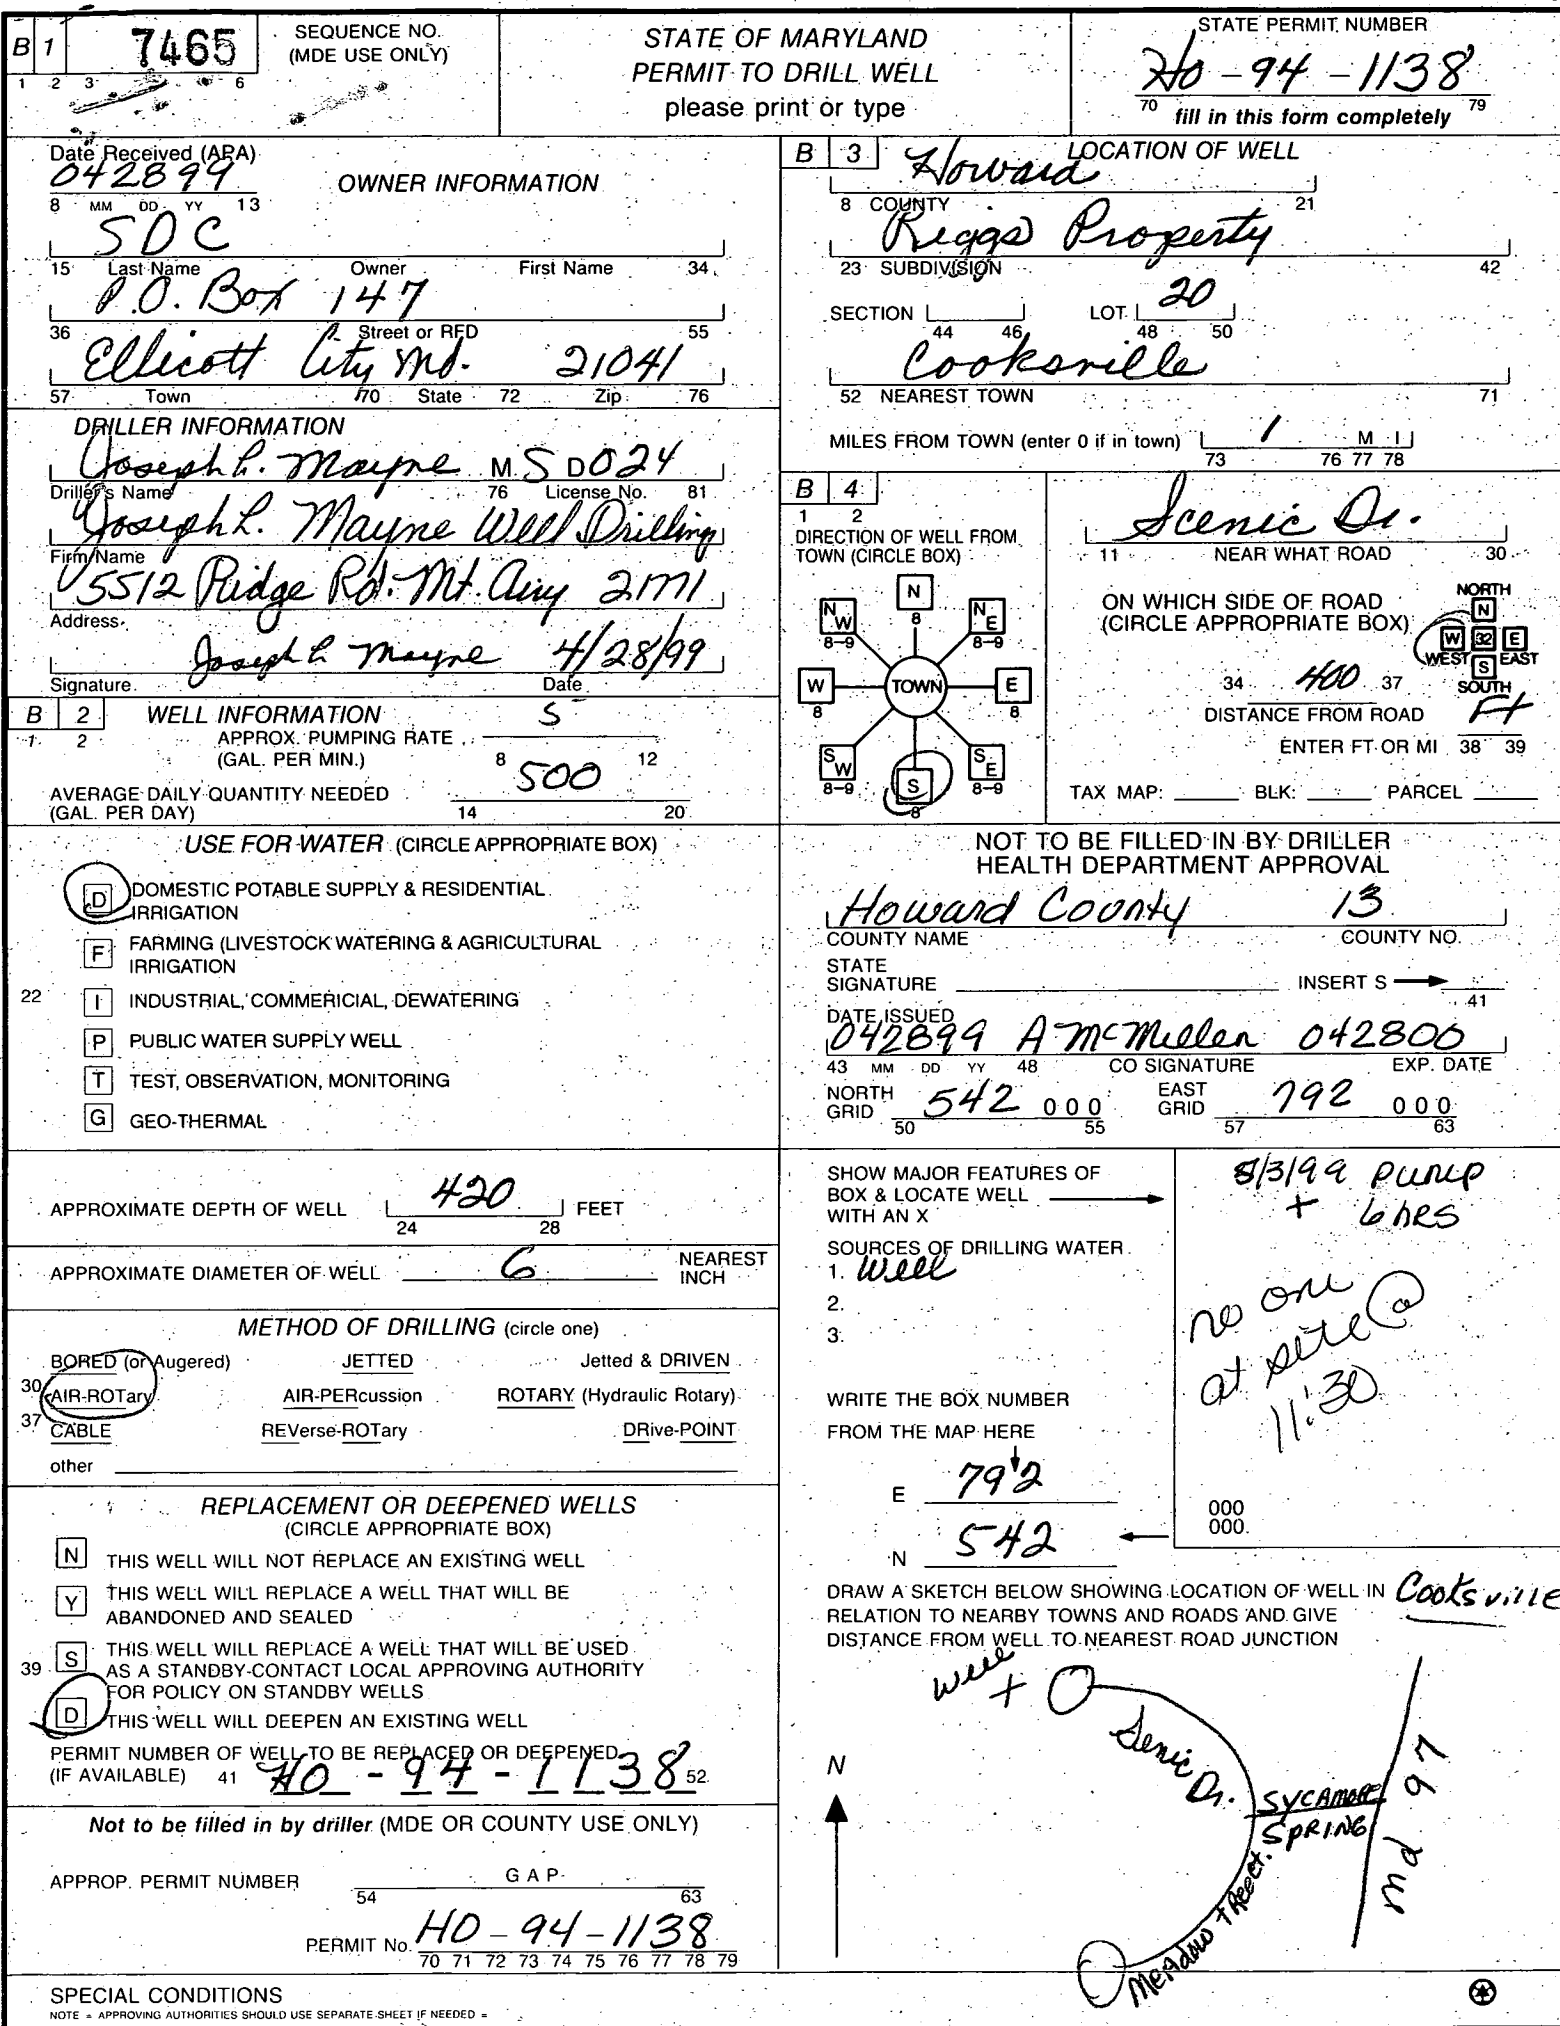 B 1 7465
1 2 3 6
SEQUENCE NO.
(MDE USE ONLY)
STATE OF MARYLAND
PERMIT TO DRILL WELL
please print or type
STATE PERMIT NUMBER
HO-94-1138
70 fill in this form completely 79
Date Received (APA)
042899
8 MM DD YY 13
OWNER INFORMATION
SDC
15 Last Name Owner First Name 34
P.O. Box 147
36 Street or RFD 55
Ellicott City Md. 21041
57 Town 70 State 72 Zip 76
DRILLER INFORMATION
Joseph L. Mayne M S D 024
Driller's Name 76 License No. 81
Joseph L. Mayne Well Drilling
Firm Name
5512 Ridge Rd. Mt. Airy 21771
Address
Joseph L Mayne 4/28/99
Signature Date
B 2 WELL INFORMATION
1 2
APPROX. PUMPING RATE 5
(GAL. PER MIN.) 8 12
AVERAGE DAILY QUANTITY NEEDED 500
(GAL. PER DAY) 14 20
USE FOR WATER (CIRCLE APPROPRIATE BOX)
D DOMESTIC POTABLE SUPPLY & RESIDENTIAL
IRRIGATION
F FARMING (LIVESTOCK WATERING & AGRICULTURAL
IRRIGATION
22 I INDUSTRIAL, COMMERICIAL, DEWATERING
P PUBLIC WATER SUPPLY WELL
T TEST, OBSERVATION, MONITORING
G GEO-THERMAL
APPROXIMATE DEPTH OF WELL 420 FEET
24 28
APPROXIMATE DIAMETER OF WELL 6 NEAREST
INCH
METHOD OF DRILLING (circle one)
BORED (or Augered) JETTED Jetted & DRIVEN
30 AIR-ROTary AIR-PERcussion ROTARY (Hydraulic Rotary)
37 CABLE REVerse-ROTary DRive-POINT
other
REPLACEMENT OR DEEPENED WELLS
(CIRCLE APPROPRIATE BOX)
N THIS WELL WILL NOT REPLACE AN EXISTING WELL
Y THIS WELL WILL REPLACE A WELL THAT WILL BE
ABANDONED AND SEALED
39 S THIS WELL WILL REPLACE A WELL THAT WILL BE USED
AS A STANDBY-CONTACT LOCAL APPROVING AUTHORITY
FOR POLICY ON STANDBY WELLS
D THIS WELL WILL DEEPEN AN EXISTING WELL
PERMIT NUMBER OF WELL TO BE REPLACED OR DEEPENED
(IF AVAILABLE) 41 HO-94-1138 52
Not to be filled in by driller (MDE OR COUNTY USE ONLY)
APPROP. PERMIT NUMBER G A P
54 63
PERMIT No. HO-94-1138
70 71 72 73 74 75 76 77 78 79
SPECIAL CONDITIONS
NOTE = APPROVING AUTHORITIES SHOULD USE SEPARATE SHEET IF NEEDED =
B 3 LOCATION OF WELL
Howard
8 COUNTY 21
Riggs Property
23 SUBDIVISION 42
SECTION LOT 20
44 46 48 50
Cooksville
52 NEAREST TOWN 71
MILES FROM TOWN (enter 0 if in town) 1 M I
73 76 77 78
B 4
1 2
DIRECTION OF WELL FROM
TOWN (CIRCLE BOX)
N
8
NW NE
8-9 8-9
W TOWN E
8 8
SW SE
8-9 S 8-9
8
Scenic Dr.
11 NEAR WHAT ROAD 30
ON WHICH SIDE OF ROAD
(CIRCLE APPROPRIATE BOX)
NORTH
N
W 32 E
WEST S EAST
SOUTH
34 400 37
DISTANCE FROM ROAD Ft
ENTER FT OR MI 38 39
TAX MAP: BLK: PARCEL
NOT TO BE FILLED IN BY DRILLER
HEALTH DEPARTMENT APPROVAL
Howard County 13
COUNTY NAME COUNTY NO.
STATE
SIGNATURE INSERT S
41
DATE ISSUED
042899 A McMillen 042800
43 MM DD YY 48 CO SIGNATURE EXP. DATE
NORTH GRID 542 000 EAST GRID 792 000
50 55 57 63
SHOW MAJOR FEATURES OF
BOX & LOCATE WELL
WITH AN X
SOURCES OF DRILLING WATER
1. Well
2.
3.
WRITE THE BOX NUMBER
FROM THE MAP HERE
E 792
N 542
8/3/99 pump
+ 6 hrs
no one
at site @
11:30
000
000
DRAW A SKETCH BELOW SHOWING LOCATION OF WELL IN Cooksville
RELATION TO NEARBY TOWNS AND ROADS AND GIVE
DISTANCE FROM WELL TO NEAREST ROAD JUNCTION
well
+
Senic Dr.
N
SYCAMORE
SPRING
md 97